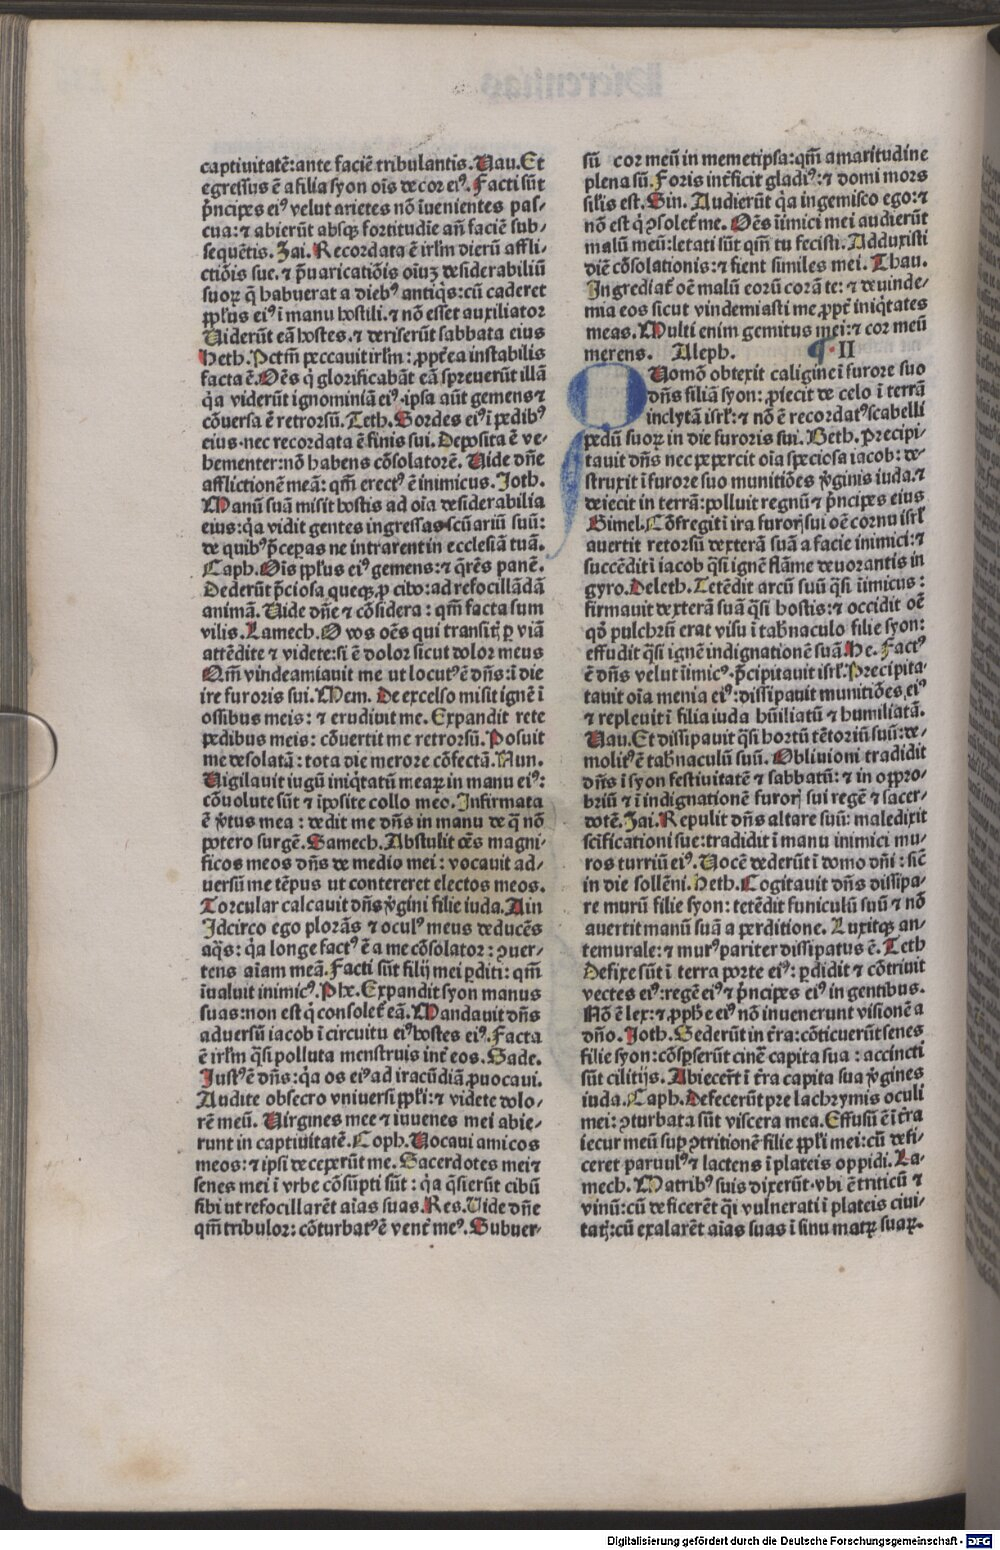 captiuitatē: ante faciē tribulantis. Uau. Et
egressus ē a filia syon oīs decor eiꝰ. Facti sūt
p̄ncipes eiꝰ velut arietes nō īuenientes pas-
cua: ⁊ abierūt absqꝫ fortitudīe an̄ faciē sub-
sequētis. Zai. Recordata ē irl̄m dierū affli-
ctiōis sue. ⁊ p̄uaricatiōis oīuꝫ desiderabiliū
suoꝝ q̄ habuerat a diebꝰ antiq̇s: cū caderet
ppl̄us eiꝰ ī manu hostili. ⁊ nō esset auxiliator
Uiderūt eā hostes. ⁊ deriserūt sabbata eius
Heth. Pctm̄ peccauit irl̄m: ꝓpt̄ea instabilis
facta ē. Oēs q̇ glorificabāt eā spreuerūt illā
q̇a viderūt ignominiā eiꝰ. ipsa aūt gemens ⁊
cōuersa ē retrorsū. Teth. Sordes eiꝰ ī pedibꝰ
eius. nec recordata ē finis sui. Deposita ē ve-
hementer: nō habens cōsolatorē. Uide dn̄e
afflictionē meā: qm̄ erectꝰ ē inimicus. Joth.
Manū suā misit hostis ad oīa desiderabilia
eius: q̇a vidit gentes ingressas scūariū suū:
de quibꝰ p̄ceperas ne intrarent in ecclesiā tuā.
Caph. Oīs ppl̄us eiꝰ gemens: ⁊ q̄rēs panē.
Dederūt p̄ciosa queqꝫ ꝓ cibo: ad refocillādā
animā. Uide dn̄e ⁊ cōsidera: qm̄ facta sum
vilis. Lamech. O vos oēs qui transitꝭ ꝑ viā
attēdite ⁊ videte: si ē dolor sicut dolor meus
Qm̄ vindeamiauit me ut locutꝰ ē dn̄s: ī die
ire furoris sui. Mem. De excelso misit ignē ī
ossibus meis: ⁊ erudiuit me. Expandit rete
pedibus meis: cōuertit me retrorsū. Posuit
me desolatā: tota die merore cōfectā. Nun.
Uigilauit iugū iniq̇tatū meaꝝ in manu eiꝰ:
cōuolute sūt ⁊ īposite collo meo. Infirmata
ē v̇tus mea: dedit me dn̄s in manu de q̄ nō
potero surgē. Samech. Abstulit oēs magni-
ficos meos dn̄s de medio mei: vocauit ad-
uersū me tēpus ut contereret electos meos.
Torcular calcauit dn̄s v̇gini filie iuda. Ain
Idcirco ego plorās ⁊ oculꝰ meus deducēs
aq̄s: q̇a longe factꝰ ē a me cōsolator: ꝯuer-
tens aīam meā. Facti sūt filij mei ꝑditi: qm̄
īualuit inimicꝰ. Phe. Expandit syon manus
suas: non est q̇ consolet̄ eā. Mandauit dn̄s
aduersū iacob ī circuitu eiꝰ hostes eiꝰ. Facta
ē irl̄m q̄si polluta menstruis int̄ eos. Sade.
Justꝰ ē dn̄s: q̇a os eiꝰ ad iracūdiā ꝓuocaui.
Audite obsecro vniuersi ppl̄i: ⁊ videte dolo-
rē meū. Uirgines mee ⁊ iuuenes mei abie-
runt in captiuitatē. Coph. Uocaui amicos
meos: ⁊ ipsi deceperūt me. Sacerdotes mei ⁊
senes mei ī vrbe cōsūpti sūt: q̇a q̄sierūt cibū
sibi ut refocillarēt aīas suas. Res. Uide dn̄e
qm̄ tribulor: cōturbatꝰ ē vent̄ meꝰ. Subuer-
sū cor meū in memetipsa: qm̄ amaritudine
plena sū. Foris int̄ficit gladiꝰ: ⁊ domi mors
sil̄is est. Sin. Audierūt q̇a ingemisco ego: ⁊
nō est q̇ ꝯsolet̄ me. Oēs īimici mei audierūt
malū meū: letati sūt qm̄ tu fecisti. Adduxisti
diē cōsolationis: ⁊ fient similes mei. Thau.
Ingrediat̄ oē malū eorū corā te: ⁊ deuinde-
mia eos sicut vindemiasti me ꝓpt̄ iniq̇tates
meas. Multi enim gemitus mei: ⁊ cor meū
merens. Aleph. ¶ II
Quomō obtexit caligine ī furore suo
dn̄s filiā syon: ꝓiecit de celo ī terrā
inclytā isrl̄: ⁊ nō ē recordatꝰ scabelli
pedū suoꝝ in die furoris sui. Beth. Precipi-
tauit dn̄s nec pepercit oīa speciosa iacob: de-
struxit ī furore suo munitiōes v̇ginis iuda. ⁊
deiecit in terrā: polluit regnū ⁊ p̄ncipes eius
Gimel. Cōfregit ī ira furorꝭ sui oē cornu isrl̄
auertit retorsū dexterā suā a facie inimici: ⁊
succēdit ī iacob q̄si ignē flāme deuorantis in
gyro. Deleth. Tetēdit arcū suū q̄si īimicus:
firmauit dexterā suā q̄si hostis: ⁊ occidit oē
qd̄ pulchrū erat visu ī tab̄naculo filie syon:
effudit q̄si ignē indignationē suā. He. Factꝰ
ē dn̄s velut īimicꝰ. p̄cipitauit isrl̄. Precipita-
tauit oīa menia eiꝰ: dissipauit munitiōes eiꝰ
⁊ repleuit ī filia iuda hūiliatū ⁊ humiliatā.
Uau. Et dissipauit q̄si hortū tētoriū suū: de-
molitꝰ ē tab̄naculū suū. Obliuioni tradidit
dn̄s ī syon festiuitatē ⁊ sabbatū: ⁊ in oppro-
briū ⁊ ī indignationē furorꝭ sui regē ⁊ sacer-
dotē. Zai. Repulit dn̄s altare suū: maledixit
scīficationi sue: tradidit ī manu inimici mu-
ros turriū eiꝰ. Uocē dederūt ī domo dn̄i: sic̄
in die sollēni. Heth. Cogitauit dn̄s dissipa-
re murū filie syon: tetēdit funiculū suū ⁊ nō
auertit manū suā a perditione. Luxitqꝫ an-
temurale: ⁊ murꝰ pariter dissipatus ē. Teth
Defixe sūt ī terra porte eiꝰ: ꝑdidit ⁊ cōtriuit
vectes eiꝰ: regē eiꝰ ⁊ p̄ncipes eiꝰ in gentibus.
Nō ē lex: ⁊ ꝓph̄e eiꝰ nō inuenerunt visionē a
dn̄o. Joth. Sederūt in t̄ra: cōticuerūt senes
filie syon: cōsꝑserūt cinē capita sua: accincti
sūt cilitijs. Abiecer̄t ī t̄ra capita sua v̇gines
iuda. Caph. Defecerūt pre lachrymis oculi
mei: ꝯturbata sūt viscera mea. Effusū ē ī t̄ra
iecur meū suꝑ ꝯtritionē filie ppl̄i mei: cū defi-
ceret paruulꝰ ⁊ lactens ī plateis oppidi. La-
mech. Matribꝰ suis dixerūt. vbi ē triticū ⁊
vinū: cū deficerēt q̄si vulnerati ī plateis ciui-
tatꝭ: cū exalarēt aīas suas ī sinu matꝝ suaꝝ.
Digitalisierung gefördert durch die Deutsche Forschungsgemeinschaft - DFG